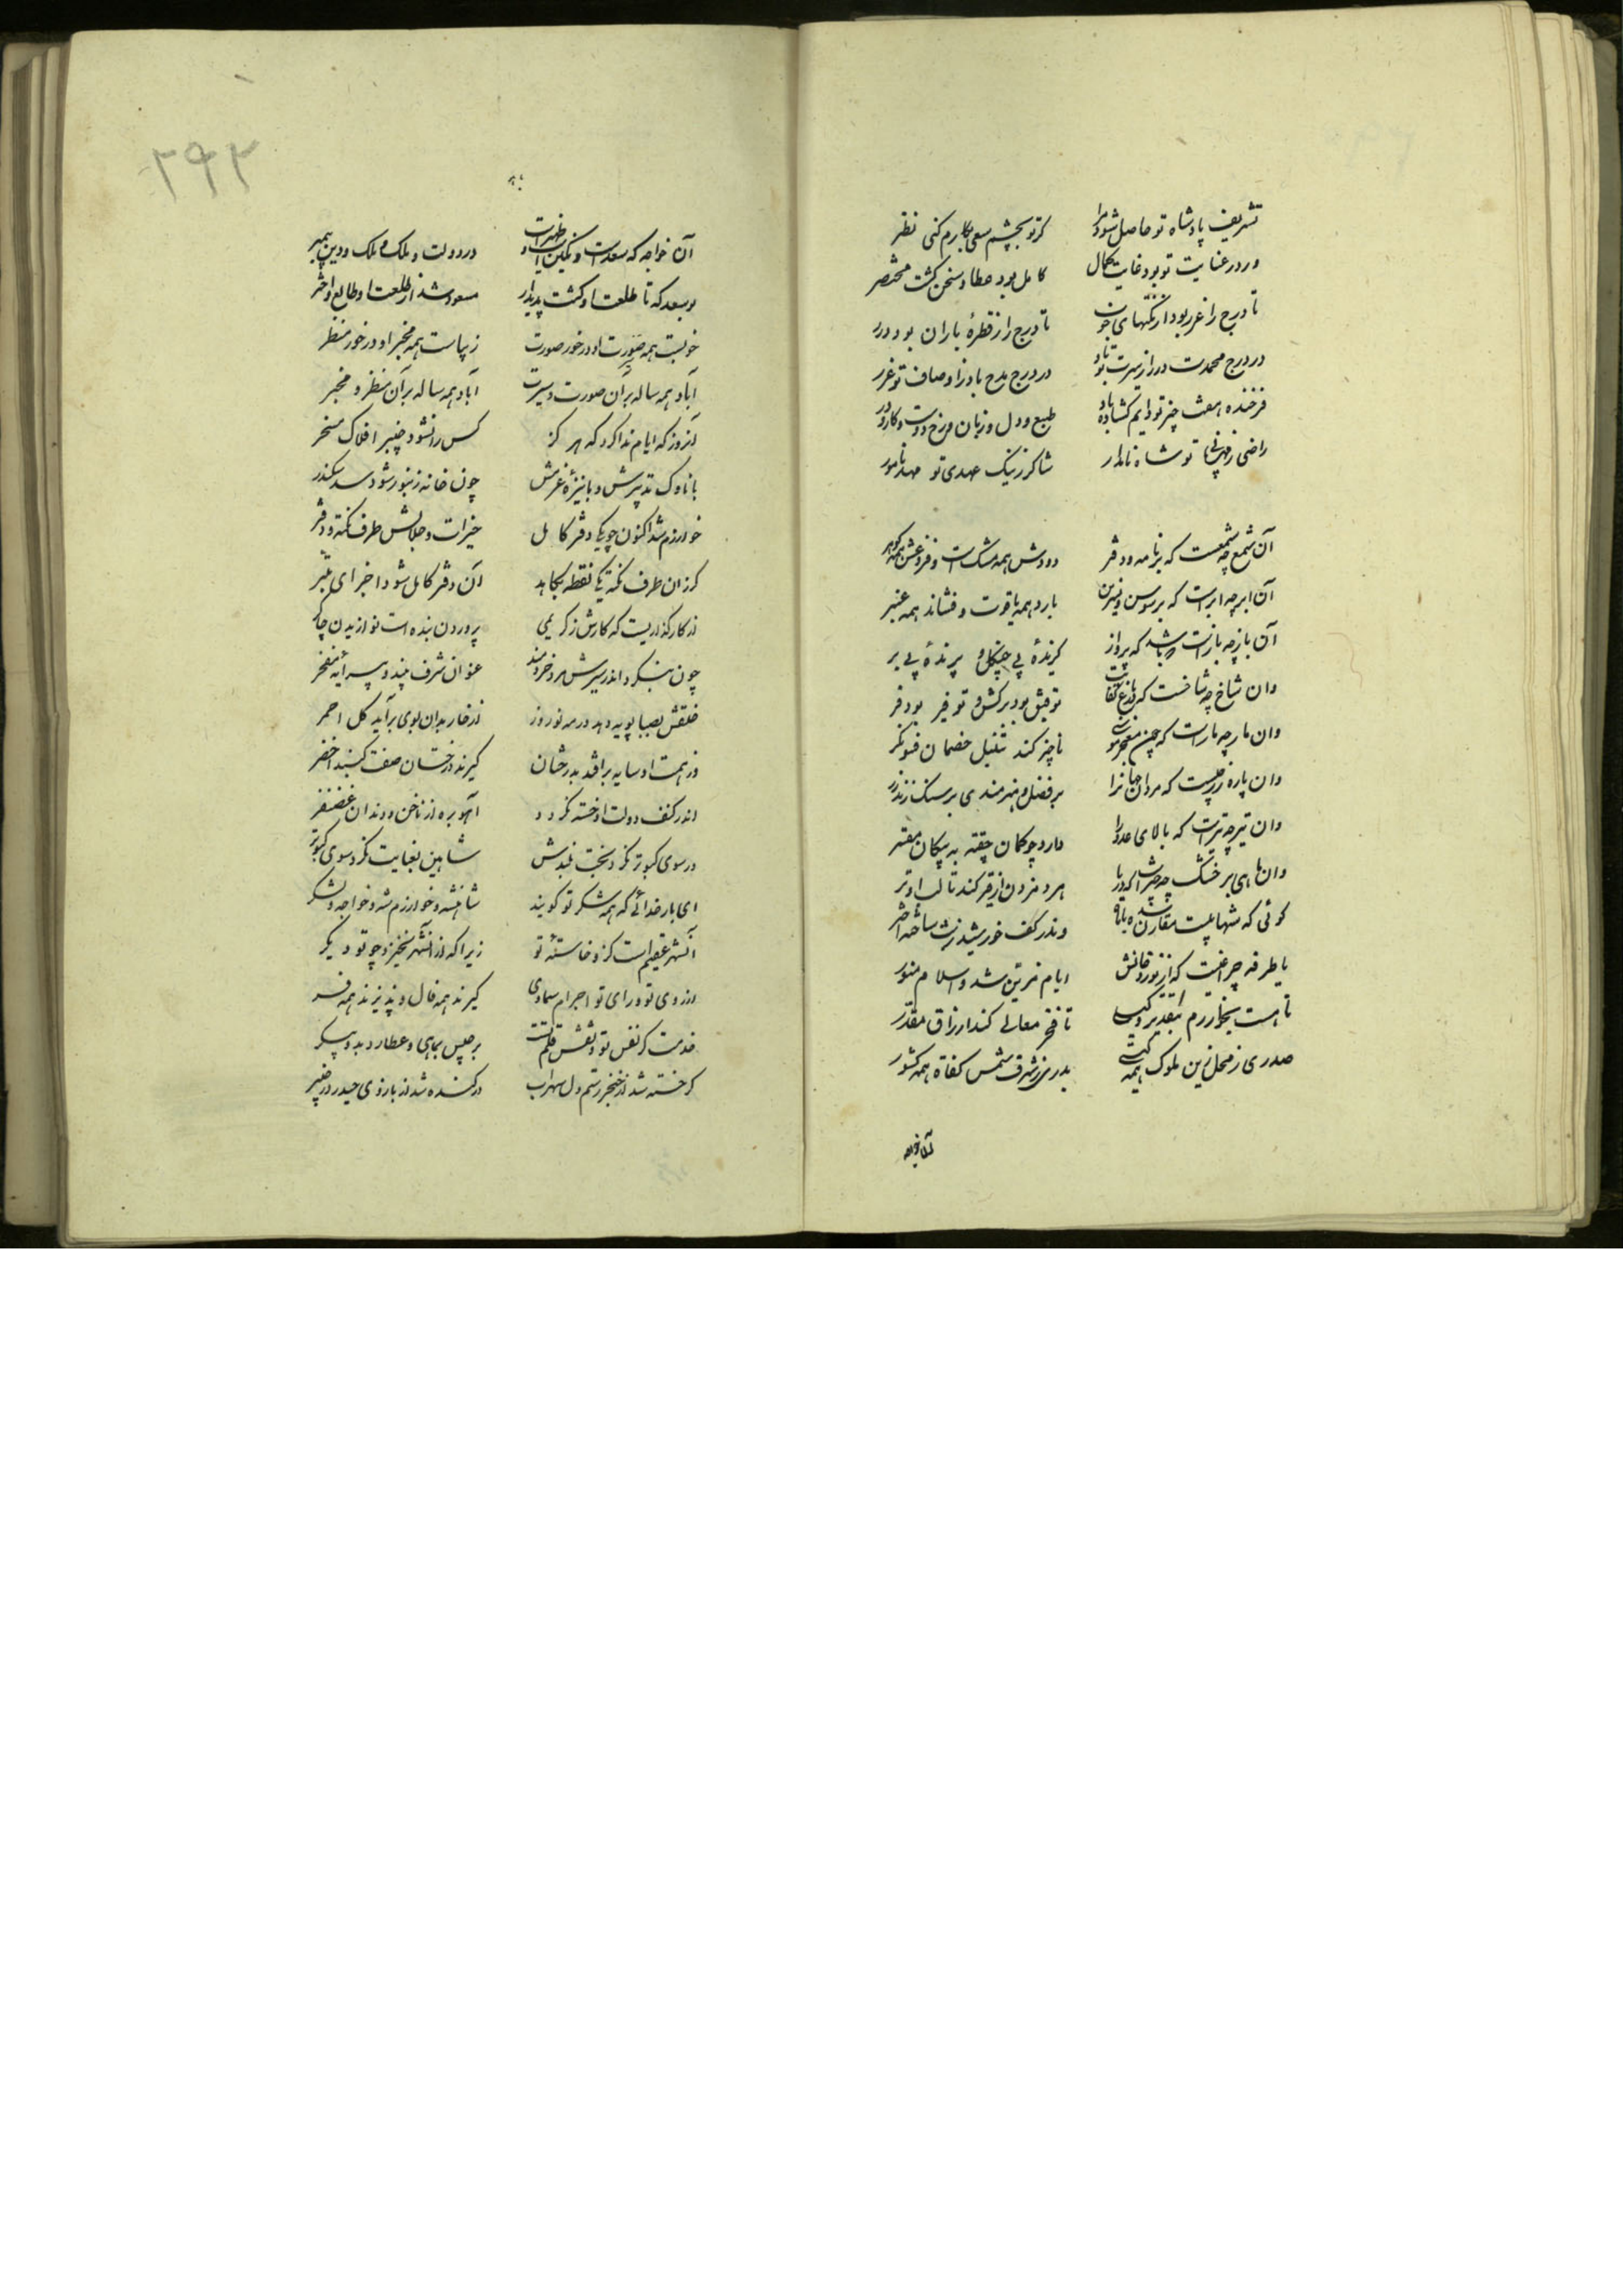 تشریف پادشاه تو حاصل شود مرا    کر تو بچشم سعی بکارم کنی نظر
ور در عنایت تو بود غایت کمال    کامل بود عطا و سخن کشت مختصر
تا درج را غرر بود از نکتهای خوب    تا درج را ز قطرهٔ باران بود درر
در درج محمدت درر از سیرت تو باد    در درج مدح باد ز اوصاف تو غرر
فرخنده    تو دایم کشاده باد    طبع و دل و زبان و رخ و دست و کار و در
راضی ز    تو شاه نامدار    شاکر ز نیک عهدی تو مهد نامور
آن شمع چه شمعست که بر نامه و دفتر    دودش همه مشک است و فروغش همه کوهر
آن ابر چه ابر است که بر سوسن و نسرین    بارد همه یاقوت و فشاند همه عنبر
آن باز چه باز است و باشد که پرواز    کیرندهٔ بی چنکل و پرندهٔ بی پر
وان شاخ چه شاخست که در باغ کفایت    توفیق بود برکش و توفیر بود بر
وان مار چه مار است که چون معجز موسی    ناچیز کند تنبل خصمان فسونکر
وان پاره زر چیست که مردان جهانرا    بر فضل و هنرمندی بر سنک زند زر
وان تیر چه تیر است که بالای عدو را    دارد چو کمان چفته به پیکان مقیر
وان ماهی بر خشک چه چیز است که دریا    هر دم ز دهن از قیر کند تا لب او تر
کوئی که شهابیست مقارن شده با ماه    وندر کف خورشید زنست ساخته اختر
یا طرفه چراغیست که از نور دخانش    ایام مزین شد و اسلام منور
تا هست بخوارزم بتقدیر و    تا فتح معالی کند ارزاق مقدر
صدری ز محل زین ملوک همه کیتی    بدری ز شرف شمس کفاة همه کشور
آن خواجه
۲۹۲
آن خواجه که سعد است و نکین است و ظهیر است    در دولت و ملک و ملک و دین پیمبر
بوسعد که تا طلعت او کشت پدیدار    مسعود شد از طلعت او طالع و اختر
خوبست همه صورت او در خور صورت    زیباست همه مخبر او در خور منظر
آباد همه ساله بر آن صورت و سیرت    آباد همه ساله بر آن منظر و مخبر
آنروز که ایام ندا کرد که هر کز    کس را نشود چنبر افلاک مسخر
با ناوک تدبیرش و با نیزهٔ عزمش    چون خانه زنبور شود سد سکندر
خوارزم شد اکنون چو یکی دفتر کامل    خیرات و جلالش طرف نکته و دفتر
کر زان طرف نکته یکی نقطه بکاهد    آن دفتر کامل شود اجزای مبتر
از کار کذاریست که کارش ز کریمی    پروردن بنده است نوازیدن چاکر
چون بنکرد اندر سیرش مرد خردمند    عنوان شرف بیند و پیرایهٔ مفخر
خلقش بصبا بویه دهد در مه نوروز    از خار بدان بوی برآید کل احمر
ور همت او سایه برافکند بدرخشان    کیرند درخشان صفت کنبد اخضر
اندر کنف دولت او خسته نکردد    آهو بره از ناخن و دندان غضنفر
در سوی کبوتر نکرد بخت بلندش    شاهین بعنایت نکرد سوی کبوتر
ای بار خدائی که همه شکر تو کویند    شاهنشه و خوارزم شه و خواجه و لشکر
آنشهر عقیم است کز و خاستهٔ تو    زیرا که از آنشهر نخیزد چو تو دیکر
از روی تو و رای تو اجرام سماوی    کیرند همه فال و پذیرند همه فر
خدمت کر نفس تو و نقش قلم تست    برجیس بماهی و عطارد بدو پیکر
کر خسته شد از خنجر رستم دل سهراب    ور کنده شد از بازوی حیدر در خیبر